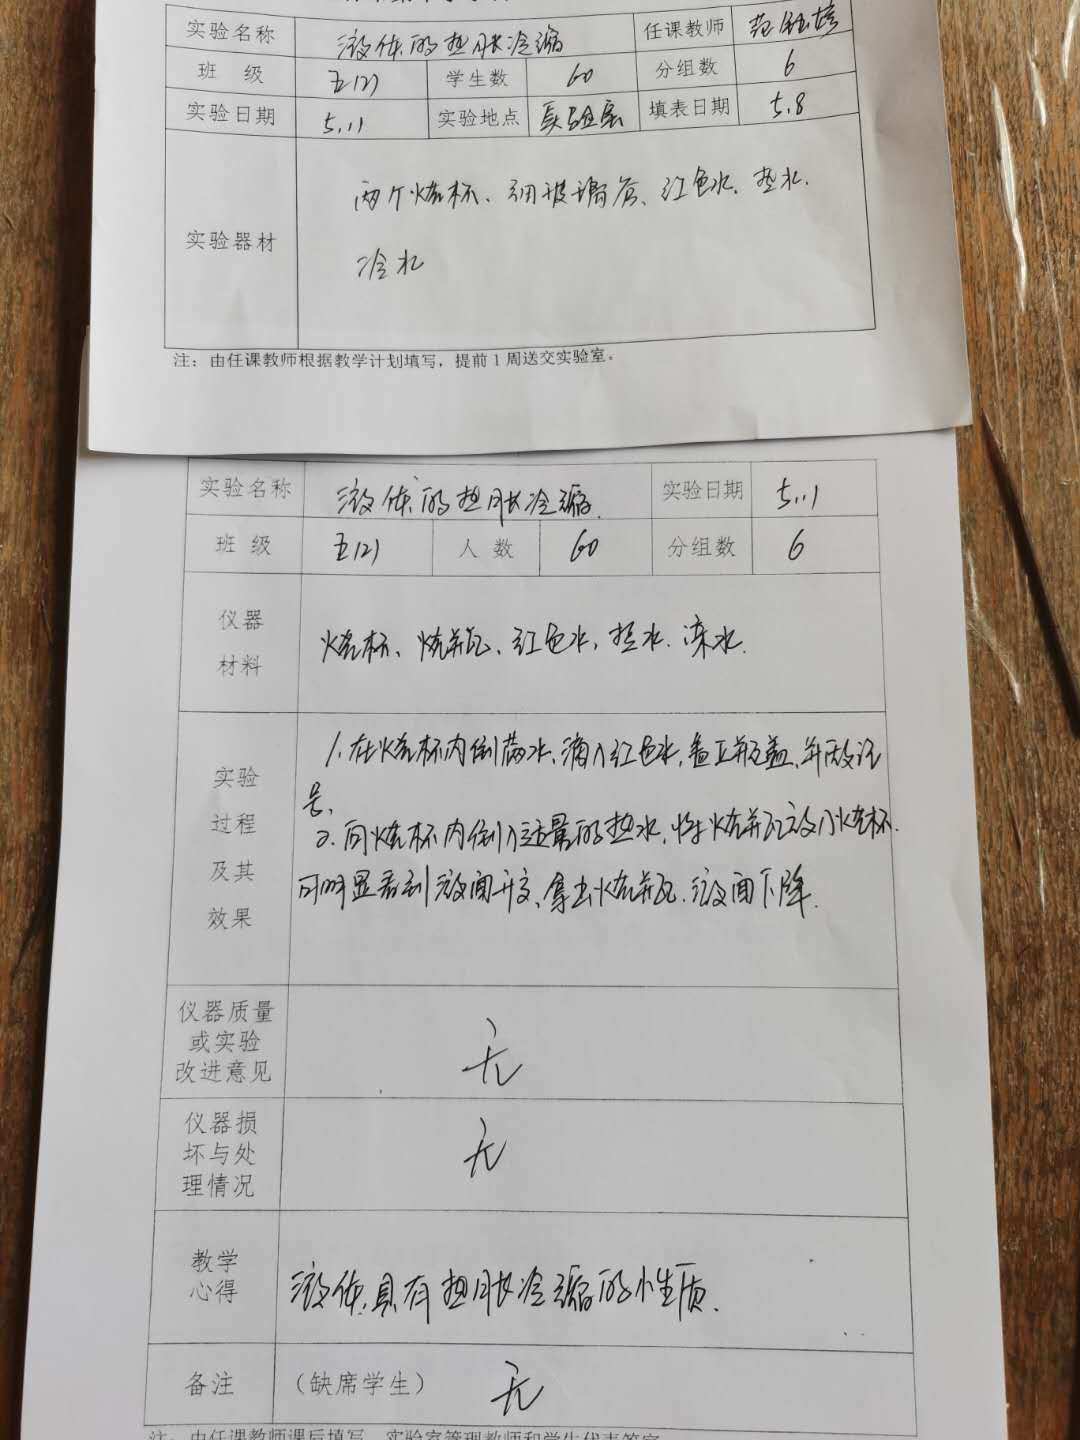 实验名称 液体的热胀冷缩 任课教师 范
班 级 五(2) 学生数 60 分组数 6
实验日期 5.11 实验地点 实验室 填表日期 5.8
实验器材 两个烧杯、玻璃管、红色水、热水.
冷水
注:由任课教师根据教学计划填写,提前1周送交实验室。
实验名称 液体的热胀冷缩. 实验日期 5.11
班 级 五(2) 人 数 60 分组数 6
仪器
材料
烧杯、烧瓶、红色水,热水.
实验
过程
及其
效果
1.在烧杯内倒满水,滴入红色水,盖上瓶盖,并做记
号.
2.向烧杯内倒入适量的热水,将烧瓶放入烧杯.
可明显看到液面升高,拿出烧瓶.液面下降.
仪器质量
或实验
改进意见
无
仪器损
坏与处
理情况
无
教学
心得
液体具有热胀冷缩的性质.
备注 (缺席学生) 无
注:由任课教师课后填写,实验室管理教师和学生代表签字